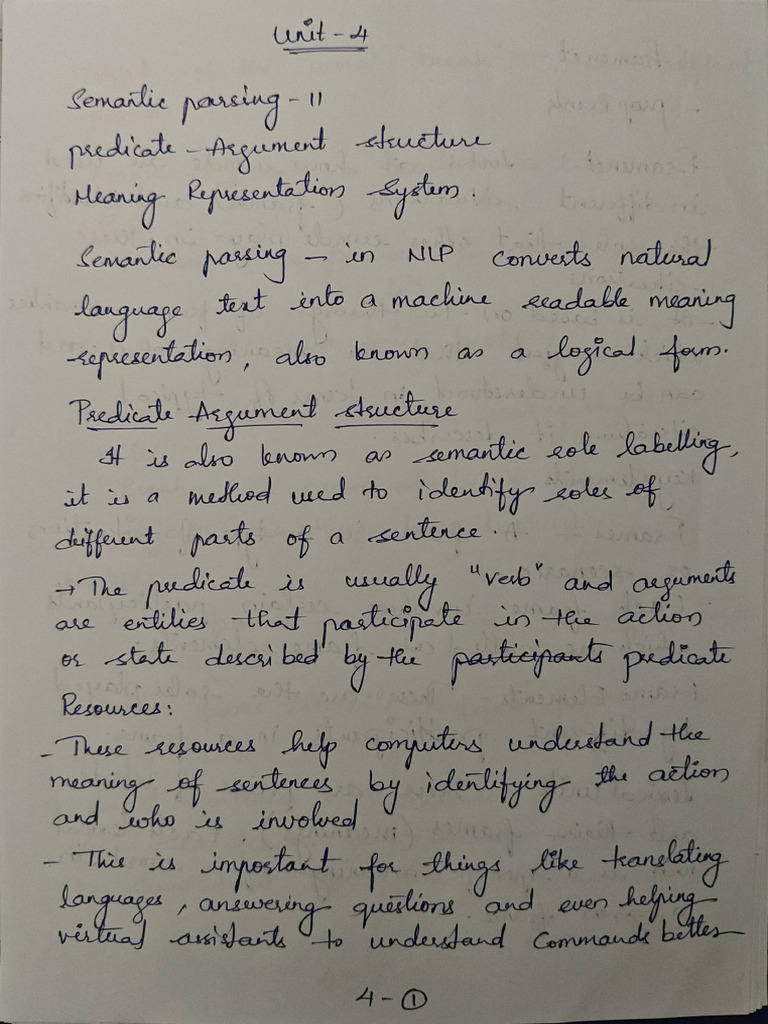 Unit - 4
Semantic parsing - II
predicate - Argument structure
Meaning Representation System.
Semantic parsing - in NLP converts natural
language text into a machine readable meaning
representation, also known as a logical form.
Predicate Argument structure
It is also known as semantic role labelling,
it is a method used to identify roles of
different parts of a sentence.
→ The predicate is usually "verb" and arguments
are entities that participate in the action
or state described by the participants predicate
Resources:
- These resources help computers understand the
meaning of sentences by identifying the action
and who is involved
- This is important for things like translating
languages, answering questions and even helping
virtual assistants to understand Commands better
4 - ①